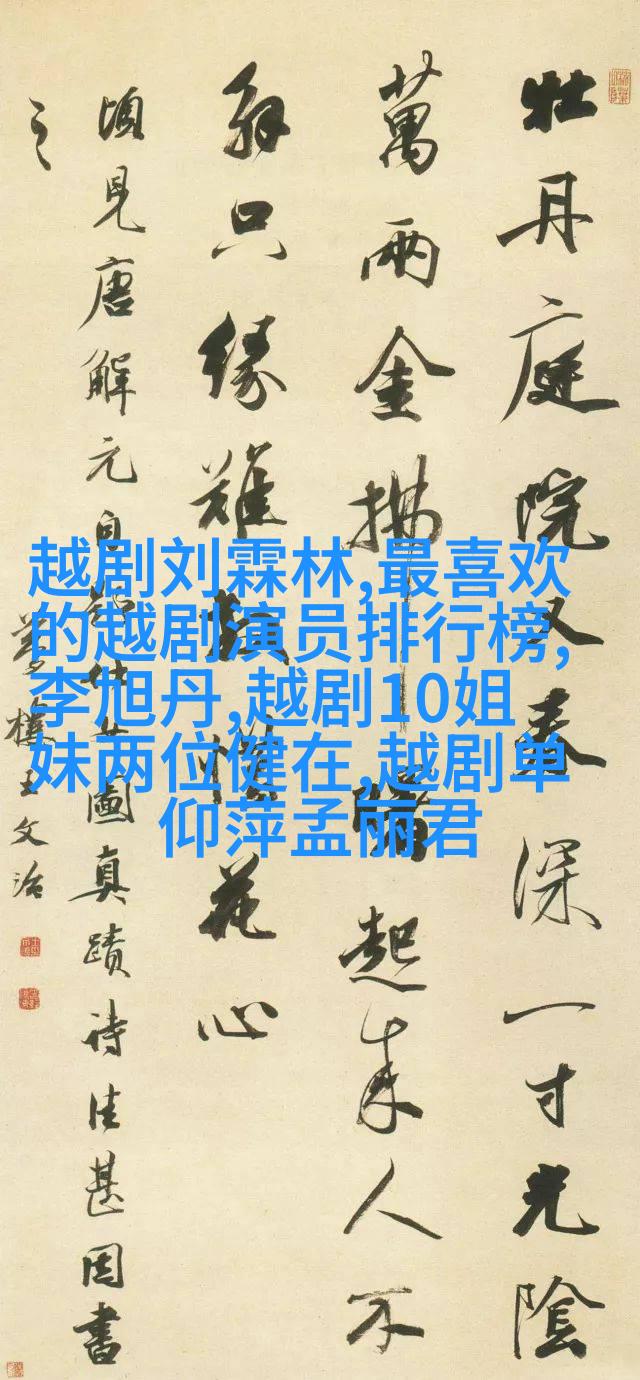 牡丹庭院又春深一寸光陰
萬兩金拂曙起來人不
解只緣難放惜花心
頃見唐解元自仕女圖真蹟詩佳甚因書
之
夢樓王文治
越剧刘霖林,最喜欢
的越剧演员排行榜,
李旭丹,越剧10姐
妹两位健在,越剧单
仰萍孟丽君